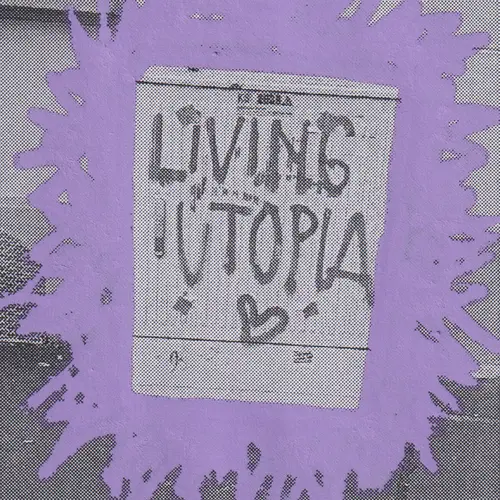 LIVING
UTOPIA